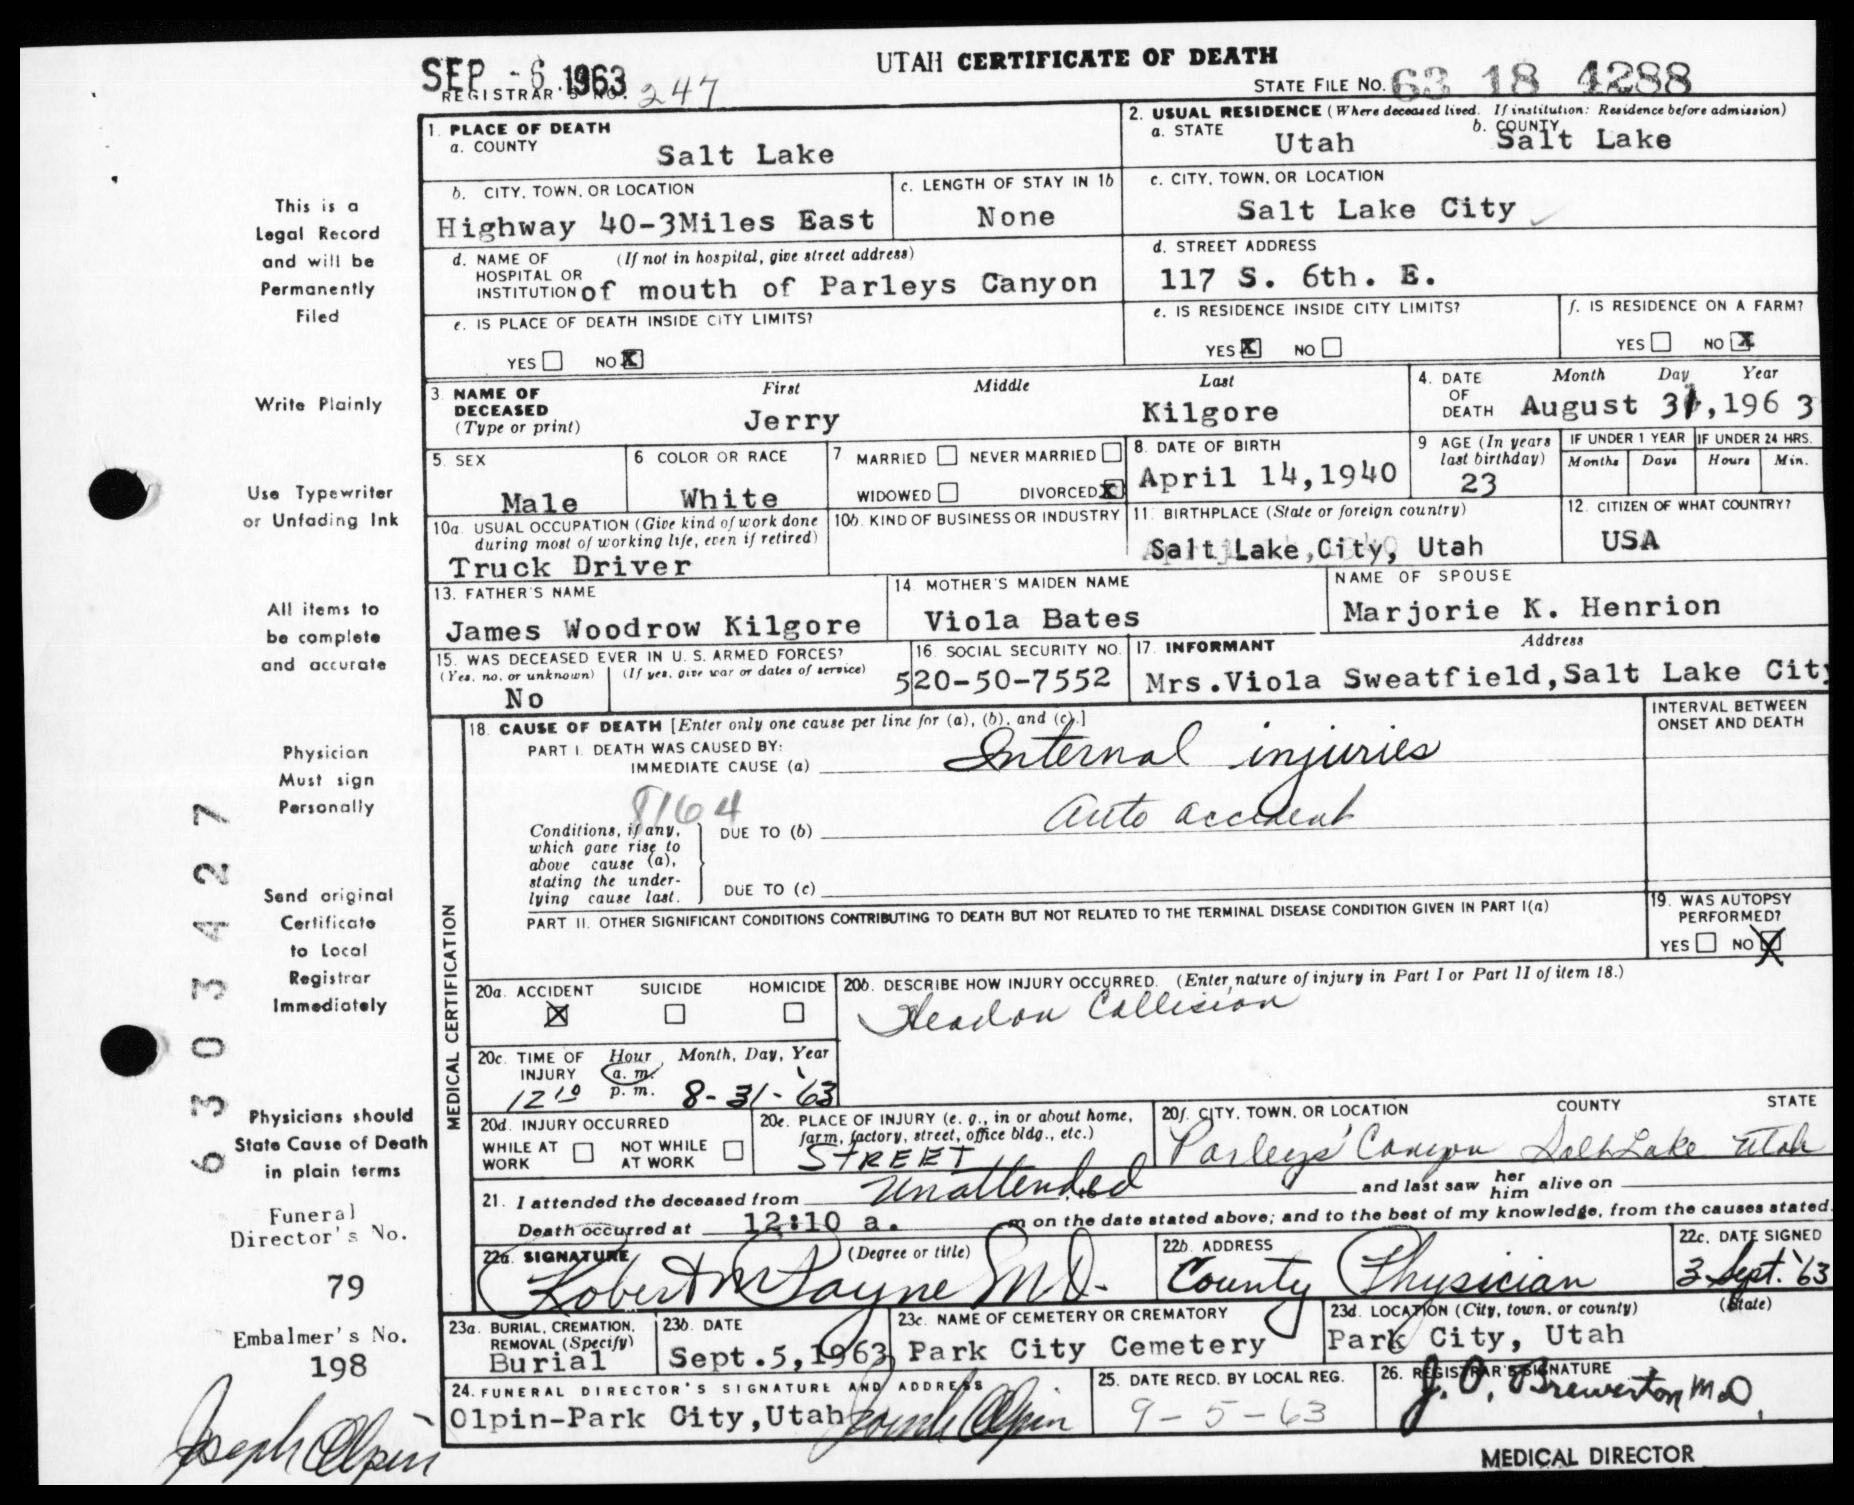 UTAH CERTIFICATE OF DEATH
SEP -6 1963
REGISTRAR'S NO. 247
STATE FILE NO. 63 18 4288
1. PLACE OF DEATH
a. COUNTY
Salt Lake
2. USUAL RESIDENCE (Where deceased lived. If institution: Residence before admission)
a. STATE Utah b. COUNTY Salt Lake
b. CITY, TOWN, OR LOCATION
Highway 40-3Miles East
c. LENGTH OF STAY IN 1b
None
c. CITY, TOWN, OR LOCATION
Salt Lake City
d. NAME OF HOSPITAL OR INSTITUTION (If not in hospital, give street address)
of mouth of Parleys Canyon
d. STREET ADDRESS
117 S. 6th. E.
e. IS PLACE OF DEATH INSIDE CITY LIMITS?
YES NO X
e. IS RESIDENCE INSIDE CITY LIMITS?
YES X NO
f. IS RESIDENCE ON A FARM?
YES NO X
3. NAME OF DECEASED (Type or print)
First Middle Last
Jerry Kilgore
4. DATE OF DEATH Month Day Year
August 31,1963
5. SEX
Male
6 COLOR OR RACE
White
7 MARRIED NEVER MARRIED
WIDOWED DIVORCED X
8. DATE OF BIRTH
April 14,1940
9 AGE (In years last birthday)
23
IF UNDER 1 YEAR
Months Days
IF UNDER 24 HRS.
Hours Min.
10a. USUAL OCCUPATION (Give kind of work done during most of working life, even if retired)
Truck Driver
10b. KIND OF BUSINESS OR INDUSTRY
11. BIRTHPLACE (State or foreign country)
Salt Lake City, Utah
12. CITIZEN OF WHAT COUNTRY?
USA
13. FATHER'S NAME
James Woodrow Kilgore
14 MOTHER'S MAIDEN NAME
Viola Bates
NAME OF SPOUSE
Marjorie K. Henrion
15. WAS DECEASED EVER IN U. S. ARMED FORCES?
(Yes, no, or unknown) (If yes, give war or dates of service)
No
16. SOCIAL SECURITY NO.
520-50-7552
17. INFORMANT Address
Mrs.Viola Sweatfield,Salt Lake City
MEDICAL CERTIFICATION
18. CAUSE OF DEATH [Enter only one cause per line for (a), (b), and (c).]
INTERVAL BETWEEN ONSET AND DEATH
PART I. DEATH WAS CAUSED BY:
IMMEDIATE CAUSE (a) Internal injuries
8164
Conditions, if any, which gave rise to above cause (a), stating the underlying cause last.
DUE TO (b) Auto accident
DUE TO (c)
PART II. OTHER SIGNIFICANT CONDITIONS CONTRIBUTING TO DEATH BUT NOT RELATED TO THE TERMINAL DISEASE CONDITION GIVEN IN PART I(a)
19. WAS AUTOPSY PERFORMED?
YES NO X
20a. ACCIDENT SUICIDE HOMICIDE
X
20b. DESCRIBE HOW INJURY OCCURRED. (Enter nature of injury in Part I or Part II of item 18.)
Headon Collision
20c. TIME OF INJURY Hour a. m. p. m. Month, Day, Year
12 10 8-31-'63
20d. INJURY OCCURRED
WHILE AT WORK NOT WHILE AT WORK
20e. PLACE OF INJURY (e. g., in or about home, farm, factory, street, office bldg., etc.)
STREET
20f. CITY, TOWN, OR LOCATION COUNTY STATE
Parleys' Canyon Salt Lake Utah
21. I attended the deceased from Unattended to and last saw her him alive on
Death occurred at 12:10 a. m on the date stated above; and to the best of my knowledge, from the causes stated.
22a. SIGNATURE (Degree or title)
Robert M Payne M.D.
22b. ADDRESS
County Physician
22c. DATE SIGNED
3 Sept. '63
23a. BURIAL, CREMATION, REMOVAL (Specify)
Burial
23b. DATE
Sept.5,1963
23c. NAME OF CEMETERY OR CREMATORY
Park City Cemetery
23d. LOCATION (City, town, or county) (State)
Park City, Utah
24. FUNERAL DIRECTOR'S SIGNATURE AND ADDRESS
Olpin-Park City,Utah Joseph Olpin
25. DATE RECD. BY LOCAL REG.
9-5-63
26. REGISTRAR'S SIGNATURE
J. O. Brewerton M.D.
MEDICAL DIRECTOR
This is a
Legal Record
and will be
Permanently
Filed
Write Plainly
Use Typewriter
or Unfading Ink
All items to
be complete
and accurate
Physician
Must sign
Personally
Send original
Certificate
to Local
Registrar
Immediately
Physicians should
State Cause of Death
in plain terms
Funeral
Director's No.
79
Embalmer's No.
198
Joseph Olpin
6303427